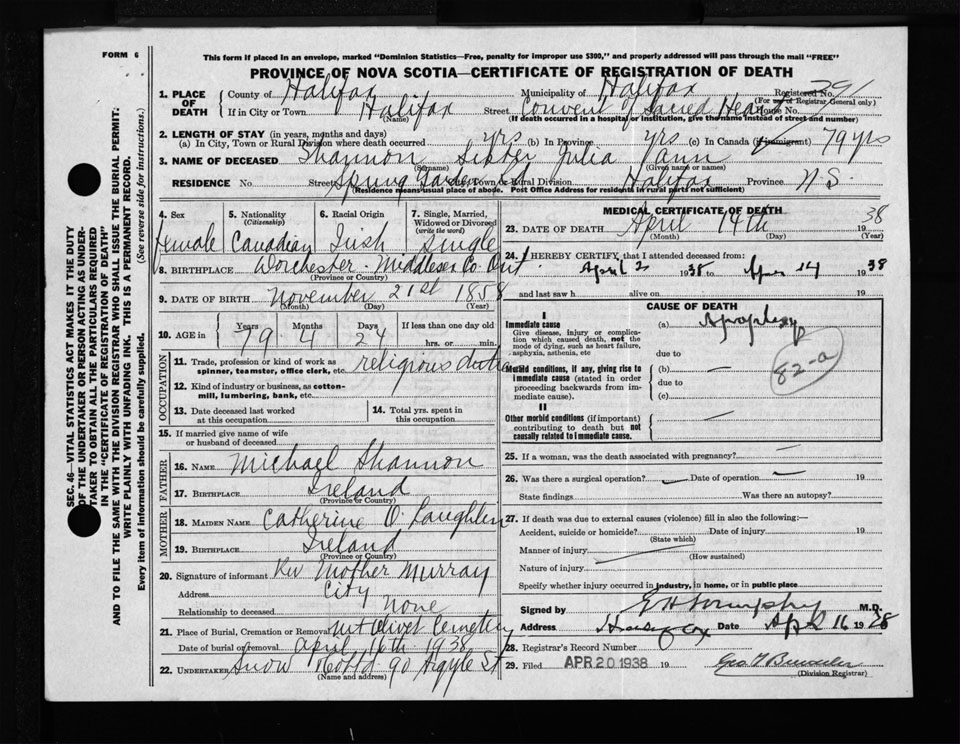 FORM 6
This form if placed in an envelope, marked "Dominion Statistics—Free, penalty for improper use $300," and properly addressed will pass through the mail "FREE"
PROVINCE OF NOVA SCOTIA—CERTIFICATE OF REGISTRATION OF DEATH
1. PLACE OF DEATH County of Halifax Municipality of Halifax Registered No.
(For use of Registrar General only)
If in City or Town Halifax Street Convent of Sacred Heart House No.
(Name) (If death occurred in a hospital or institution, give the name instead of street and number)
2. LENGTH OF STAY (in years, months and days)
(a) In City, Town or Rural Division where death occurred yrs (b) In Province yrs (c) In Canada (if immigrant) 79 yrs
3. NAME OF DECEASED Shannon Sister Julia Ann
(Surname) (Given name or names)
RESIDENCE No. Street Spring Garden Rd City, Town or Rural Division Halifax Province N.S.
(Residence means usual place of abode. Post Office Address for residents in rural parts not sufficient)
4. Sex 5. Nationality (Citizenship) 6. Racial Origin 7. Single, Married, Widowed or Divorced (write the word)
female Canadian Irish Single
8. BIRTHPLACE Worchester - Middlesex Co. Ont.
(Province or Country)
9. DATE OF BIRTH November 21st 1858
(Month) (Day) (Year)
10. AGE in Years Months Days If less than one day old
79 4 24 hrs. or min.
OCCUPATION
11. Trade, profession or kind of work as spinner, teamster, office clerk, etc. religious duties
12. Kind of industry or business, as cotton-mill, lumbering, bank, etc.
13. Date deceased last worked at this occupation 14. Total yrs. spent in this occupation
15. If married give name of wife or husband of deceased
FATHER
16. NAME Michael Shannon
17. BIRTHPLACE Ireland
(Province or Country)
MOTHER
18. MAIDEN NAME Catherine O'Laughlen
19. BIRTHPLACE Ireland
(Province or Country)
20. Signature of informant Rev Mother Murray
Address City
Relationship to deceased None
21. Place of Burial, Cremation or Removal Mt Olivet Cemetery
Date of burial or removal April 16th 1938
22. UNDERTAKER Snow & Co Ltd 90 Argyle St
(Name and address)
MEDICAL CERTIFICATE OF DEATH
23. DATE OF DEATH April 14th 1938
(Month) (Day) (Year)
24. I HEREBY CERTIFY, that I attended deceased from
April 2 1938 to Apr 14 1938
and last saw h alive on 19
CAUSE OF DEATH
I
Immediate cause (a) Apoplexy
Give disease, injury or complication which caused death, not the mode of dying, such as heart failure, asphyxia, asthenia, etc
due to
82-a
Morbid conditions, if any, giving rise to immediate cause (stated in order proceeding backwards from immediate cause). (b) —
due to
(c)
II
Other morbid conditions (if important) contributing to death but not causally related to immediate cause. —
25. If a woman, was the death associated with pregnancy? —
26. Was there a surgical operation? — Date of operation — 19
State findings Was there an autopsy?
27. If death was due to external causes (violence) fill in also the following:—
Accident, suicide or homicide? Date of injury 19
(State which)
Manner of injury
(How sustained)
Nature of injury
Specify whether injury occurred in industry, in home, or in public place
Signed by M.D.
Address Halifax Date Apl 16 1938
28. Registrar's Record Number
29. Filed APR 20 1938 19
(Division Registrar)
SEC. 46—VITAL STATISTICS ACT MAKES IT THE DUTY
OF THE UNDERTAKER OR PERSON ACTING AS UNDER-
TAKER TO OBTAIN ALL THE PARTICULARS REQUIRED
IN THE "CERTIFICATE OF REGISTRATION OF DEATH"
AND TO FILE THE SAME WITH THE DIVISION REGISTRAR WHO SHALL ISSUE THE BURIAL PERMIT.
WRITE PLAINLY WITH UNFADING INK. THIS IS A PERMANENT RECORD.
Every item of information should be carefully supplied. (See reverse side for instructions.)